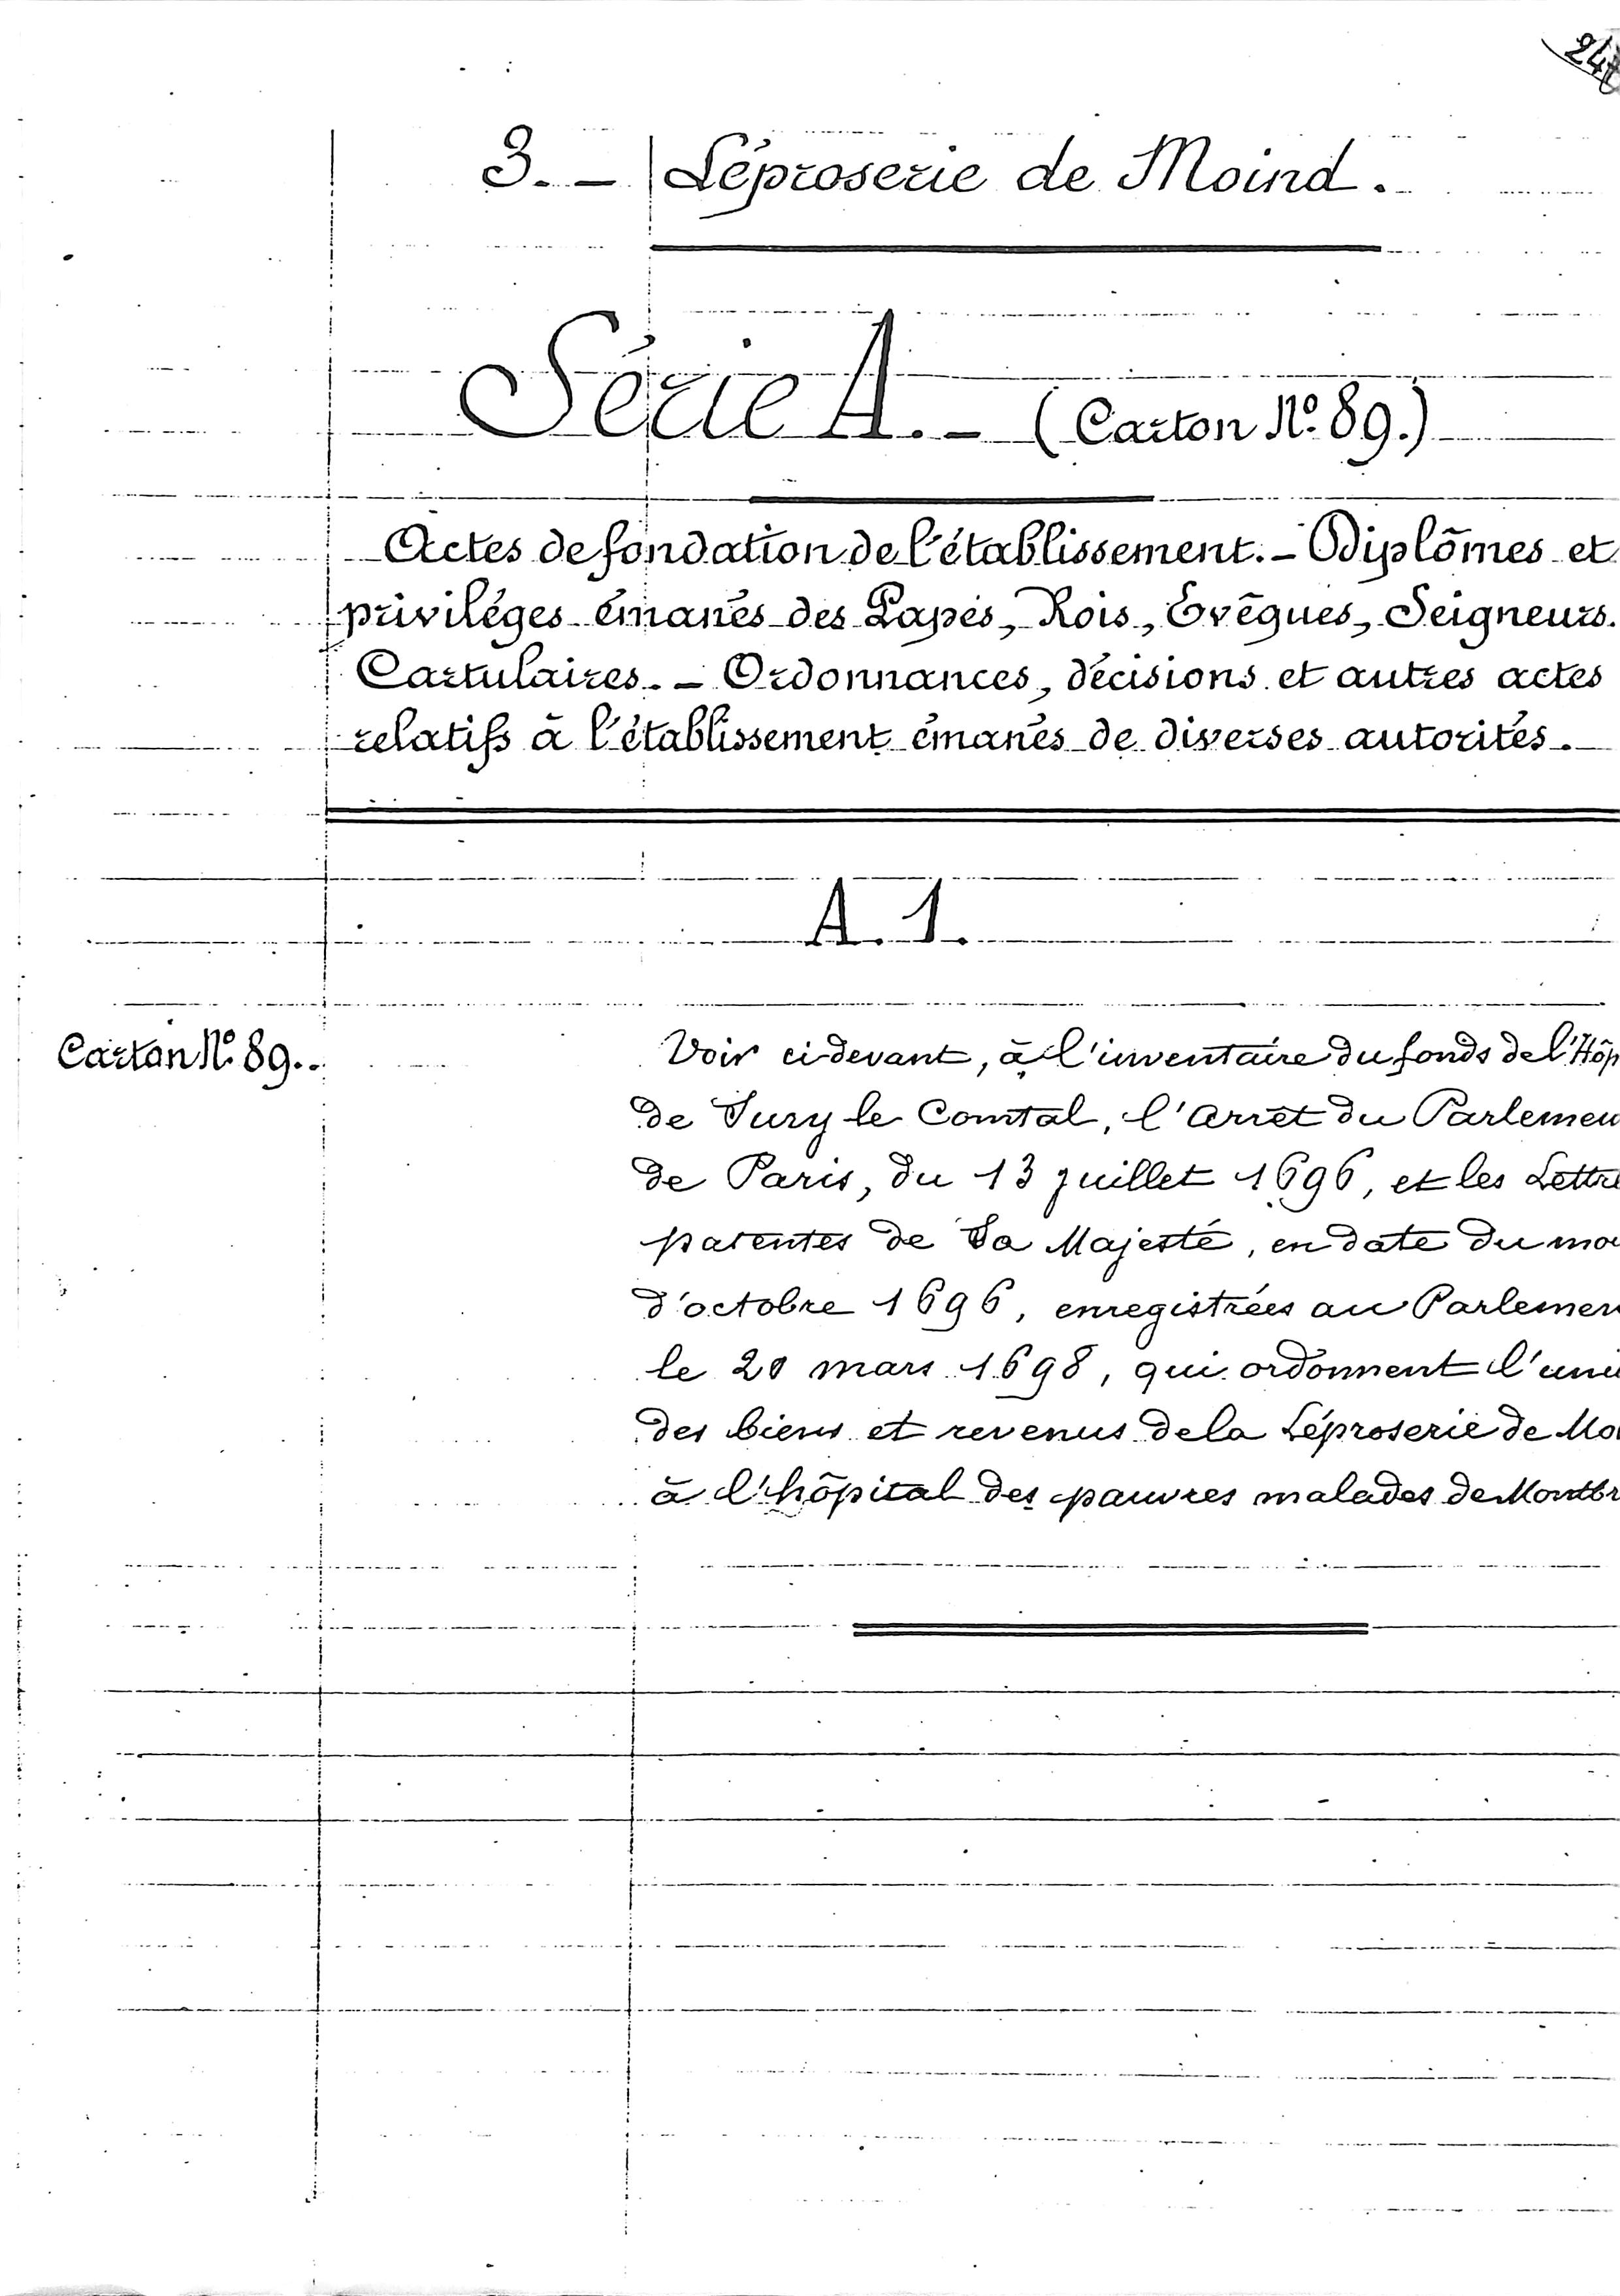 3. — Léproserie de Moind.
Série A. — (Carton N° 89.)
Actes de fondation de l'établissement. — Diplômes et
priviléges émanés des Papes, Rois, Evêques, Seigneurs.
Cartulaires. — Ordonnances, décisions et autres actes
relatifs à l'établissement émanés de diverses autorités.
A. 1.
Carton N° 89.
Voir ci-devant, à l'inventaire du fonds de l'Hôp
de Sury le Comtal, l'Arrêt du Parlemen
de Paris, du 13 juillet 1696, et les Lettre
patentes de Sa Majesté, en date du moi
d'octobre 1696, enregistrées au Parlemen
le 20 mars 1698, qui ordonnent l'uni
des biens et revenus de la Léproserie de Moi
à l'hôpital des pauvres malades de Montbr